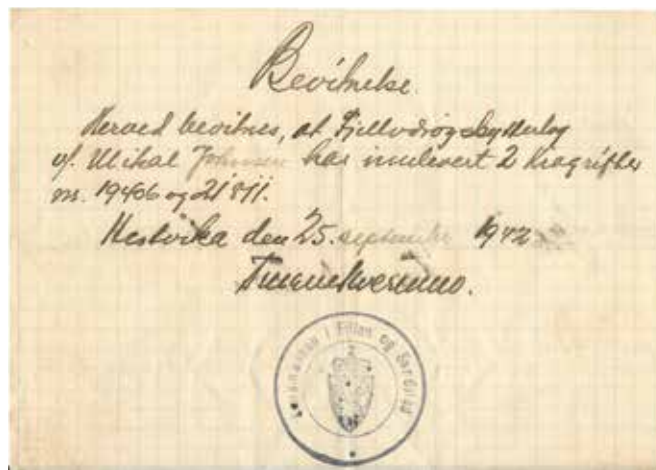 Bevitnelse.
Herved bevitnes, at Fjellværøy skytterlag
v/ Mikal Johnsen har innlevert 2 kragrifler
nr. 19406 og 21811.
Hestvika den 25. september 1942
Lensmannen i Fillan og